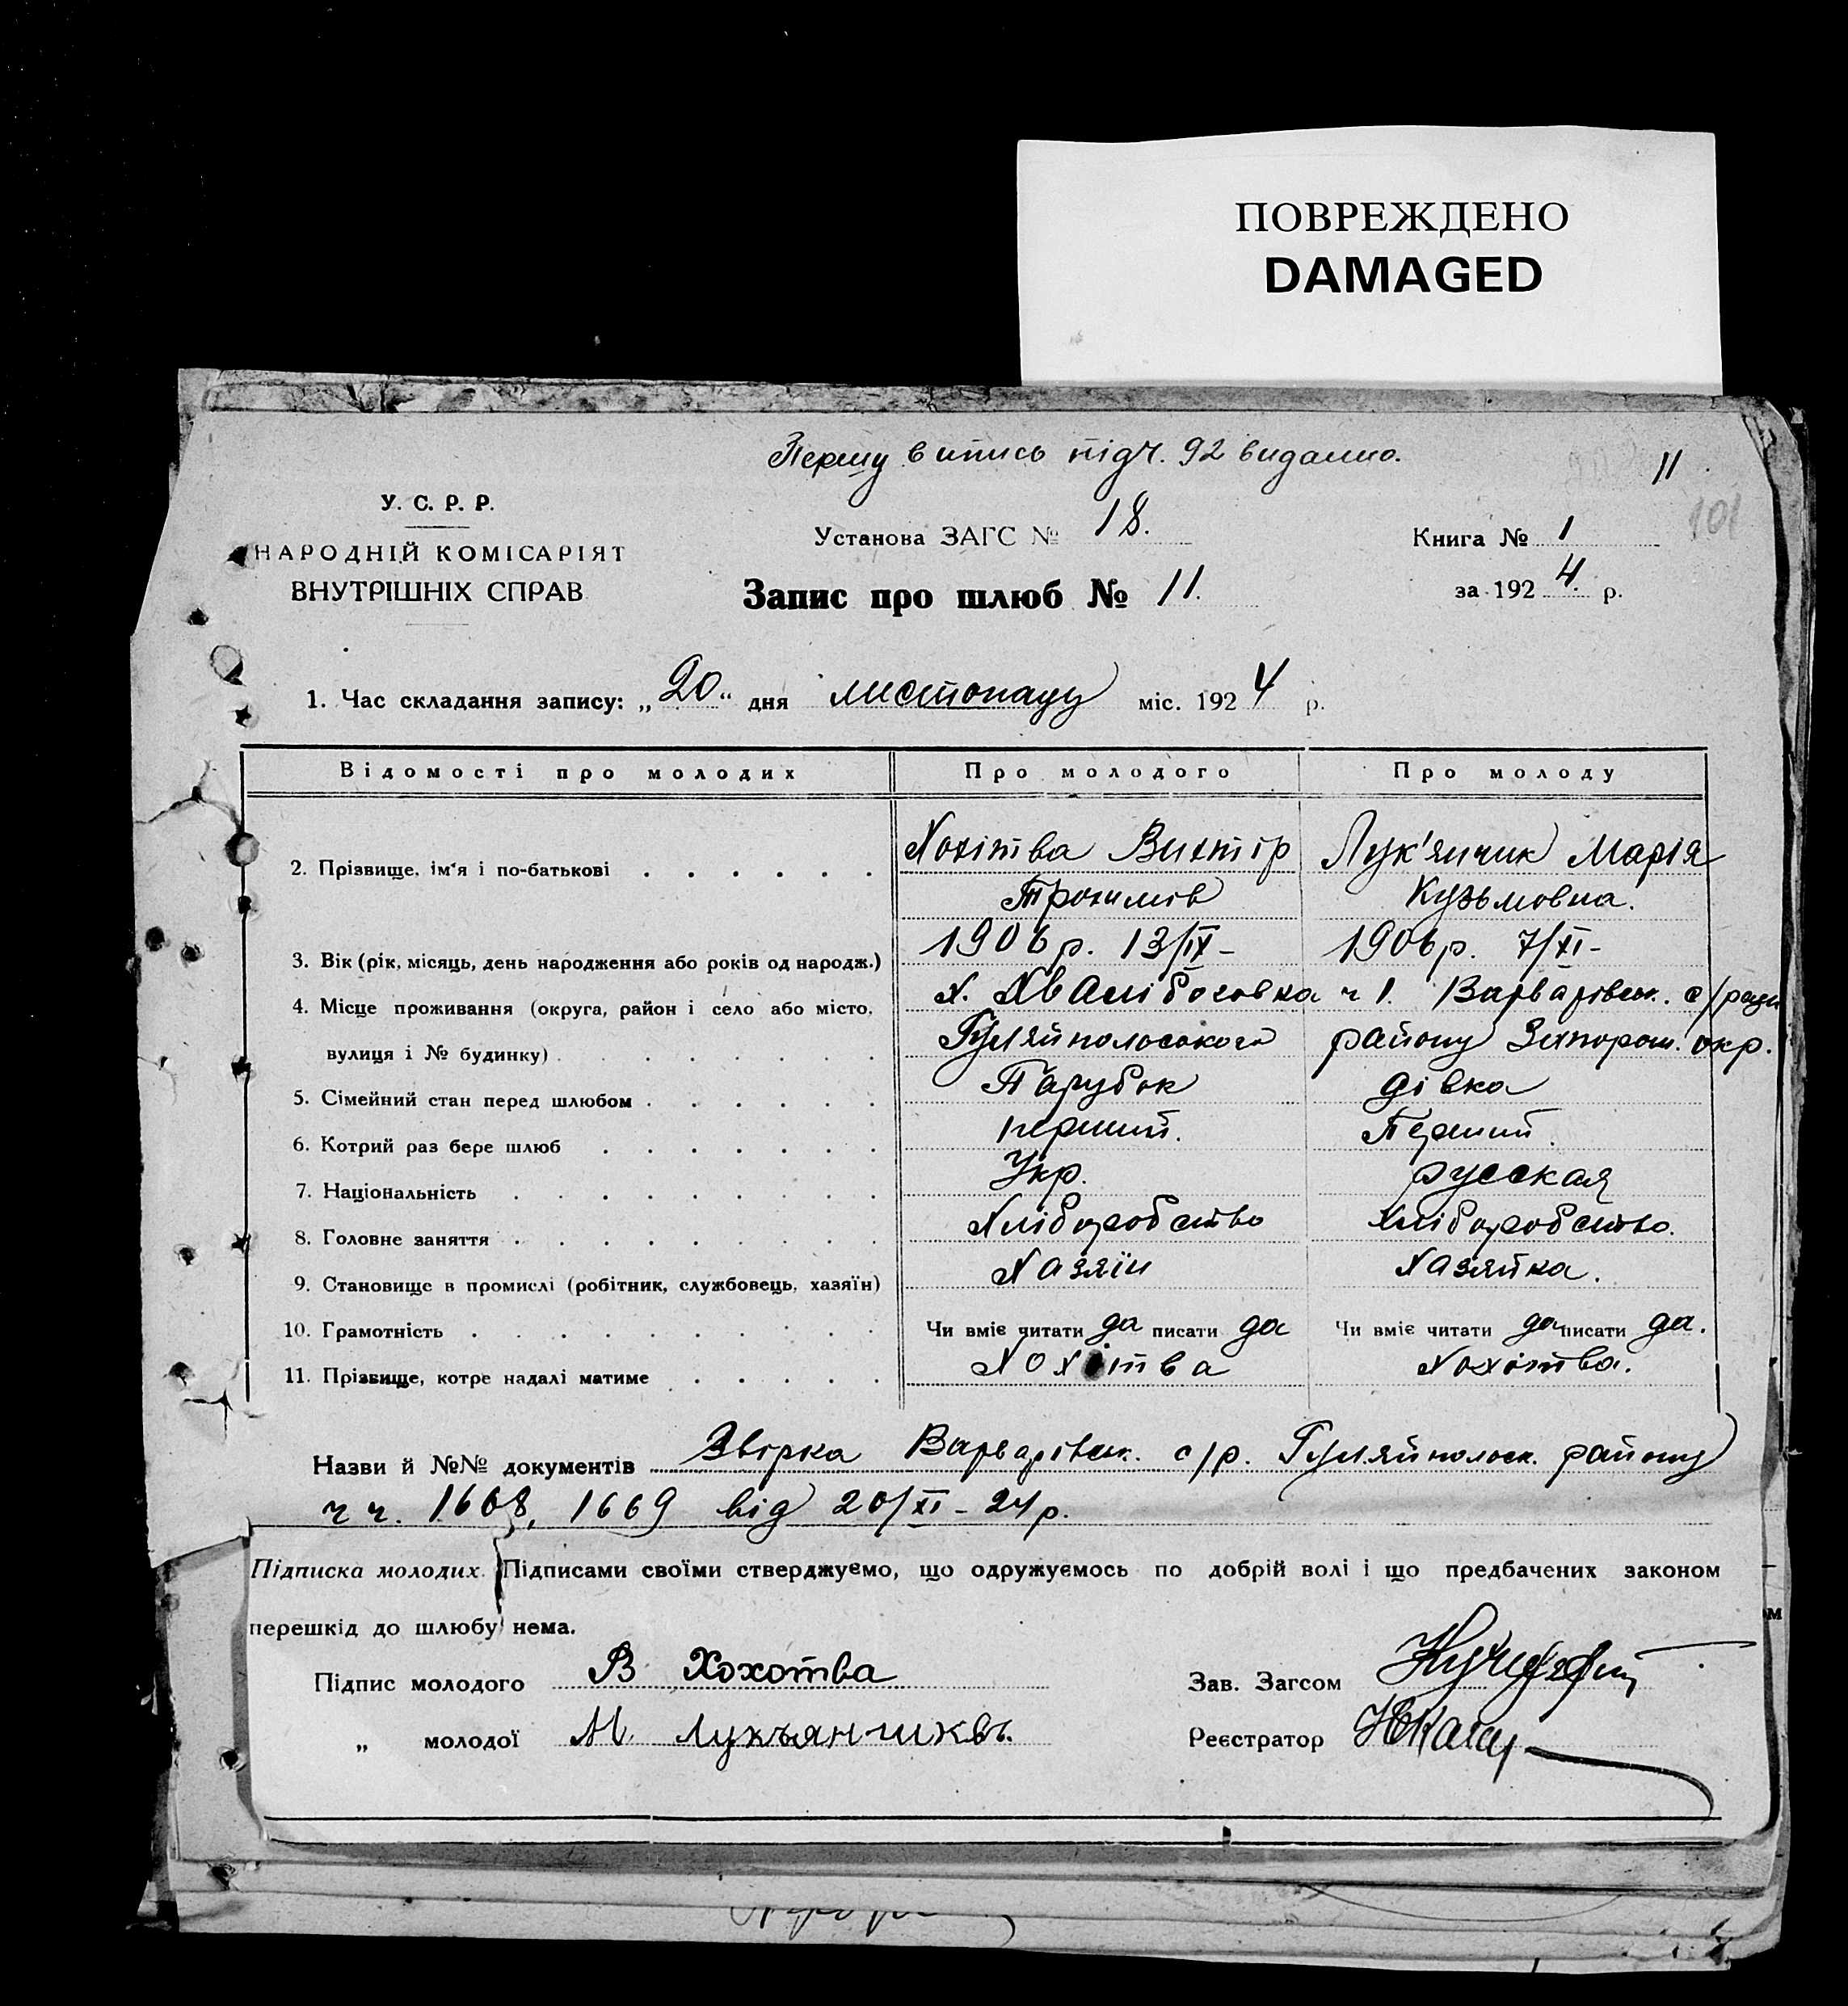 ПОВРЕЖДЕНО
DAMAGED
Першу випись під ч. 92 видано.
11
101
У. С. Р. Р.
НАРОДНІЙ КОМІСАРІЯТ
ВНУТРІШНІХ СПРАВ
Установа ЗАГС № 18.
Запис про шлюб № 11.
Книга № 1
за 1924 р.
1. Час складання запису: „20“ дня листопаду міс. 1924 р.
Відомості про молодих Про молодого Про молоду
2. Прізвище, ім'я і по-батькові Хохітва Виктір Лук'янчик Марія
Трохимів Кузьмовна.
3. Вік (рік, місяць, день народження або років од народж.) 1906 р. 13/IX- 1906 р. 7/XI-
4. Місце проживання (округа, район і село або місто, х. ч 1. Варварівськ. с/ради
вулиця і № будинку) Гуляйпольського району Запорож. окр.
5. Сімейний стан перед шлюбом Парубок дівка
6. Котрий раз бере шлюб перший. Перший.
7. Національність Укр. русская
8. Головне заняття Хліборобство Хліборобство.
9. Становище в промислі (робітник, службовець, хазяїн) Хазяїн Хазяйка.
10. Грамотність Чи вміє читати да писати да Чи вміє читати да писати да.
11. Прізвище, котре надалі матиме Хохітва Хохітва.
Назви й №№ документів Звірка Варварівськ. с/р. Гуляйпольск. району
ч ч. 1668, 1669 від 20/XI-24 р.
Підписка молодих. Підписами своїми стверджуємо, що одружуємось по добрій волі і що предбачених законом
перешкід до шлюбу нема.
Підпис молодого В Хохотва Зав. Загсом
„ молодої М Лукъянчикъ. Реєстратор